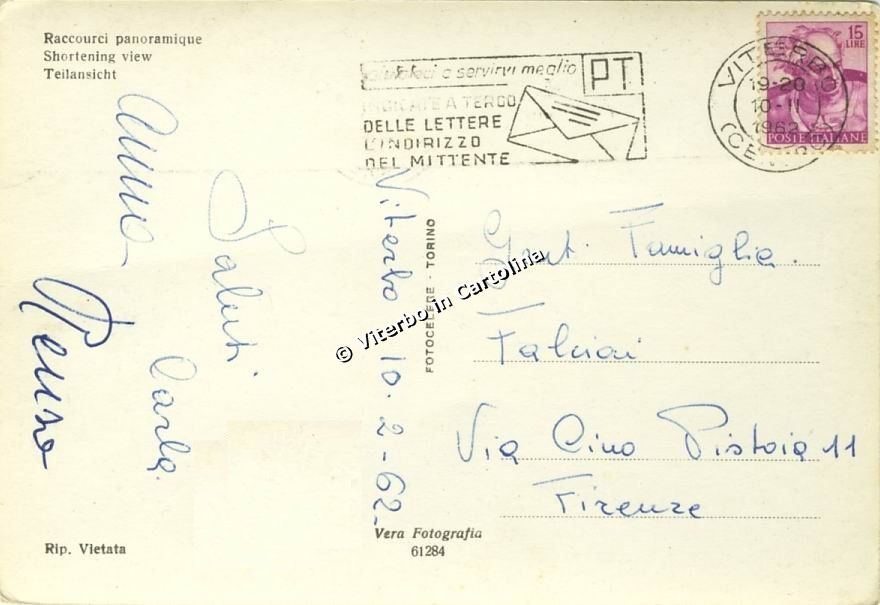 Raccourci panoramique
Shortening view
Teilansicht
aiutateci a servirvi meglio
PT
INDICATE A TERGO
DELLE LETTERE
L'INDIRIZZO
DEL MITTENTE
VITERBO
19-20
10-II
1962
15
LIRE
POSTE ITALIANE
Anna
Saluti
Carla
Viterbo 10-2-62-
FOTOCELERE - TORINO
© Viterbo in Cartolina
Gent. Famiglia
Falciai
Via Cino Pistoia 11
Firenze
Vera Fotografia
61284
Rip. Vietata